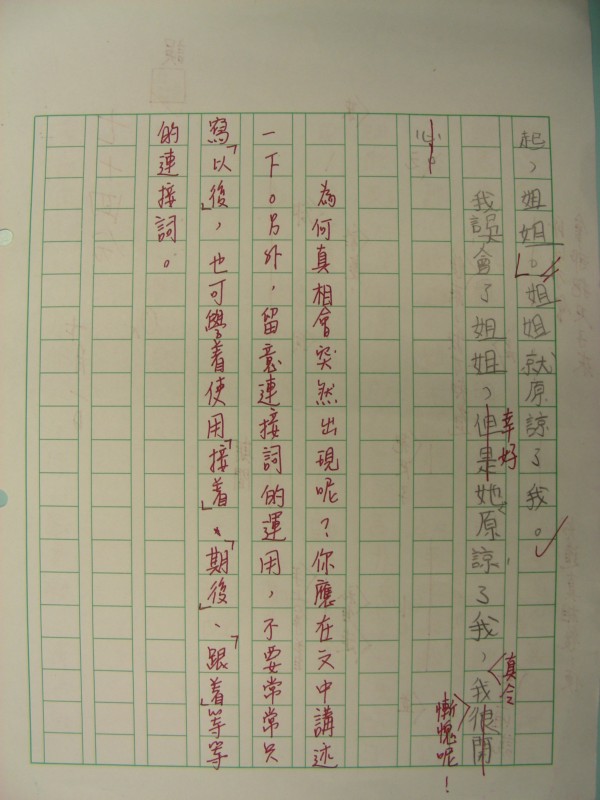 起，姐姐。」姐姐就原諒了我。
我誤會了姐姐，但是她原諒了我，我很開
幸好
真令
慚愧呢！
心。
為何真相會突然出現呢？你應在文中講述
一下。另外，留意連接詞的運用，不要常常只
寫「以後」，也可學着使用「接着」、「期後」、「跟着」等等
的連接詞。